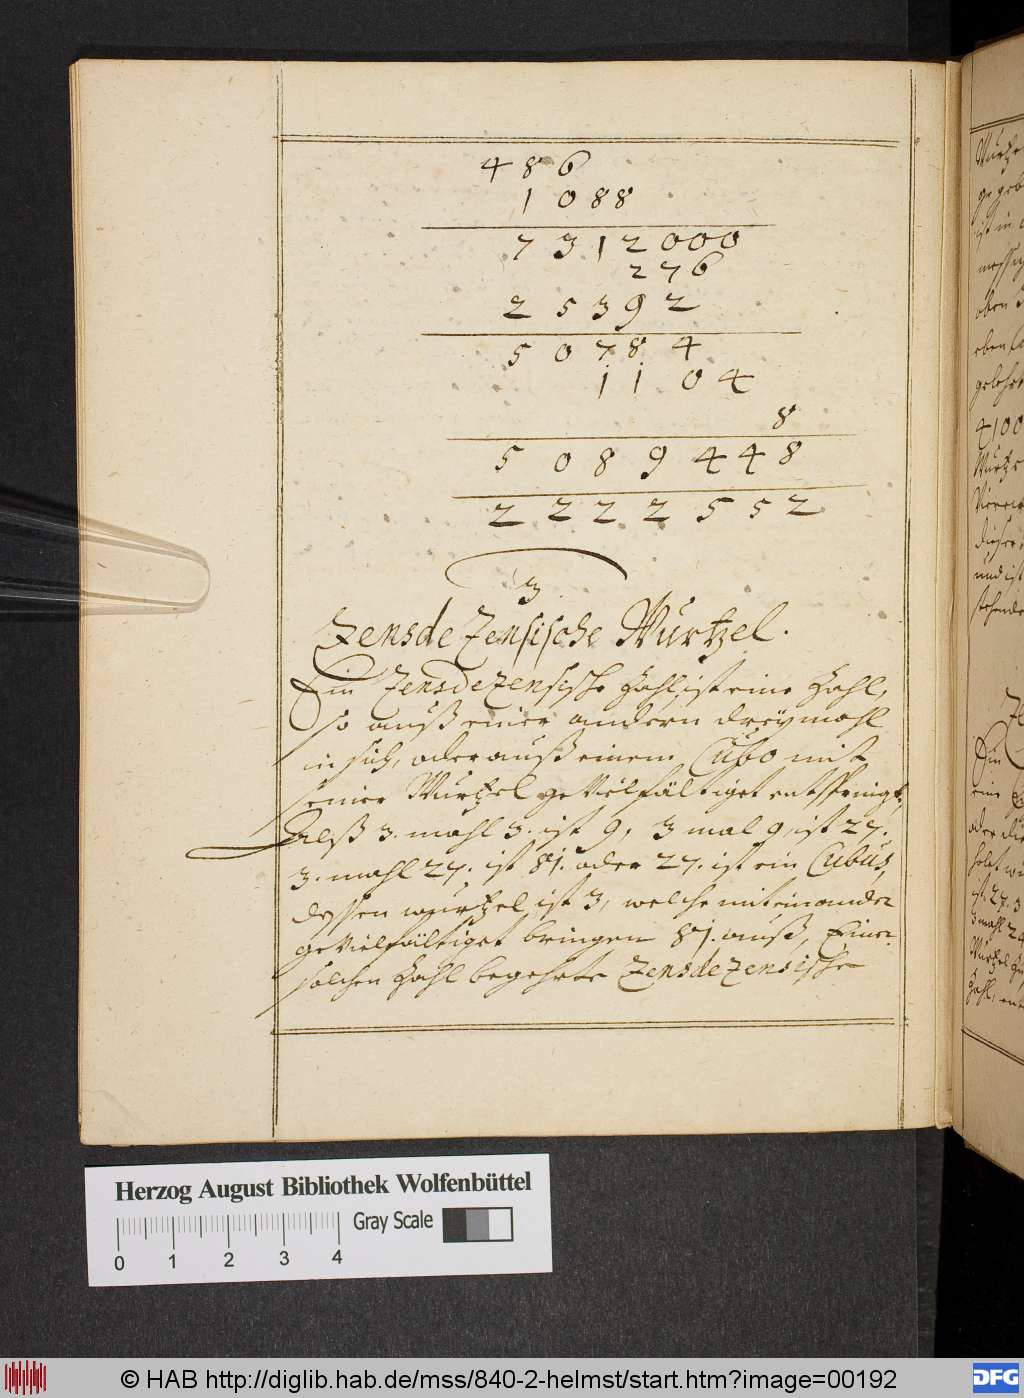 4 8 6
1 0 8 8
7 3 1 2 0 0 0
2 7 6
2 5 3 9 2
5 0 7 8 4
1 1 0 4
8
5 0 8 9 4 4 8
2 2 2 2 5 5 2
3
ZensdeZensische Wurtzel.
Ein Zensdezensische Zahl ist eine Zahl,
so auß einer andern dreymahl
in sich, oder auß einem Cubo mit
seiner Wurtzel gevielfältiget entspringt,
Alß 3. mahl 3. ist 9, 3 mal 9, ist 27.
3. mahl 27. ist 81. oder 27. ist ein Cubus,
dessen wurtzel ist 3, welche miteinander
gevielfältiget bringen 81. auß, Einer
solchen Zahl begehrte Zensdezensische
Herzog August Bibliothek Wolfenbüttel
Gray Scale
0 1 2 3 4
© HAB http://diglib.hab.de/mss/840-2-helmst/start.htm?image=00192
DFG